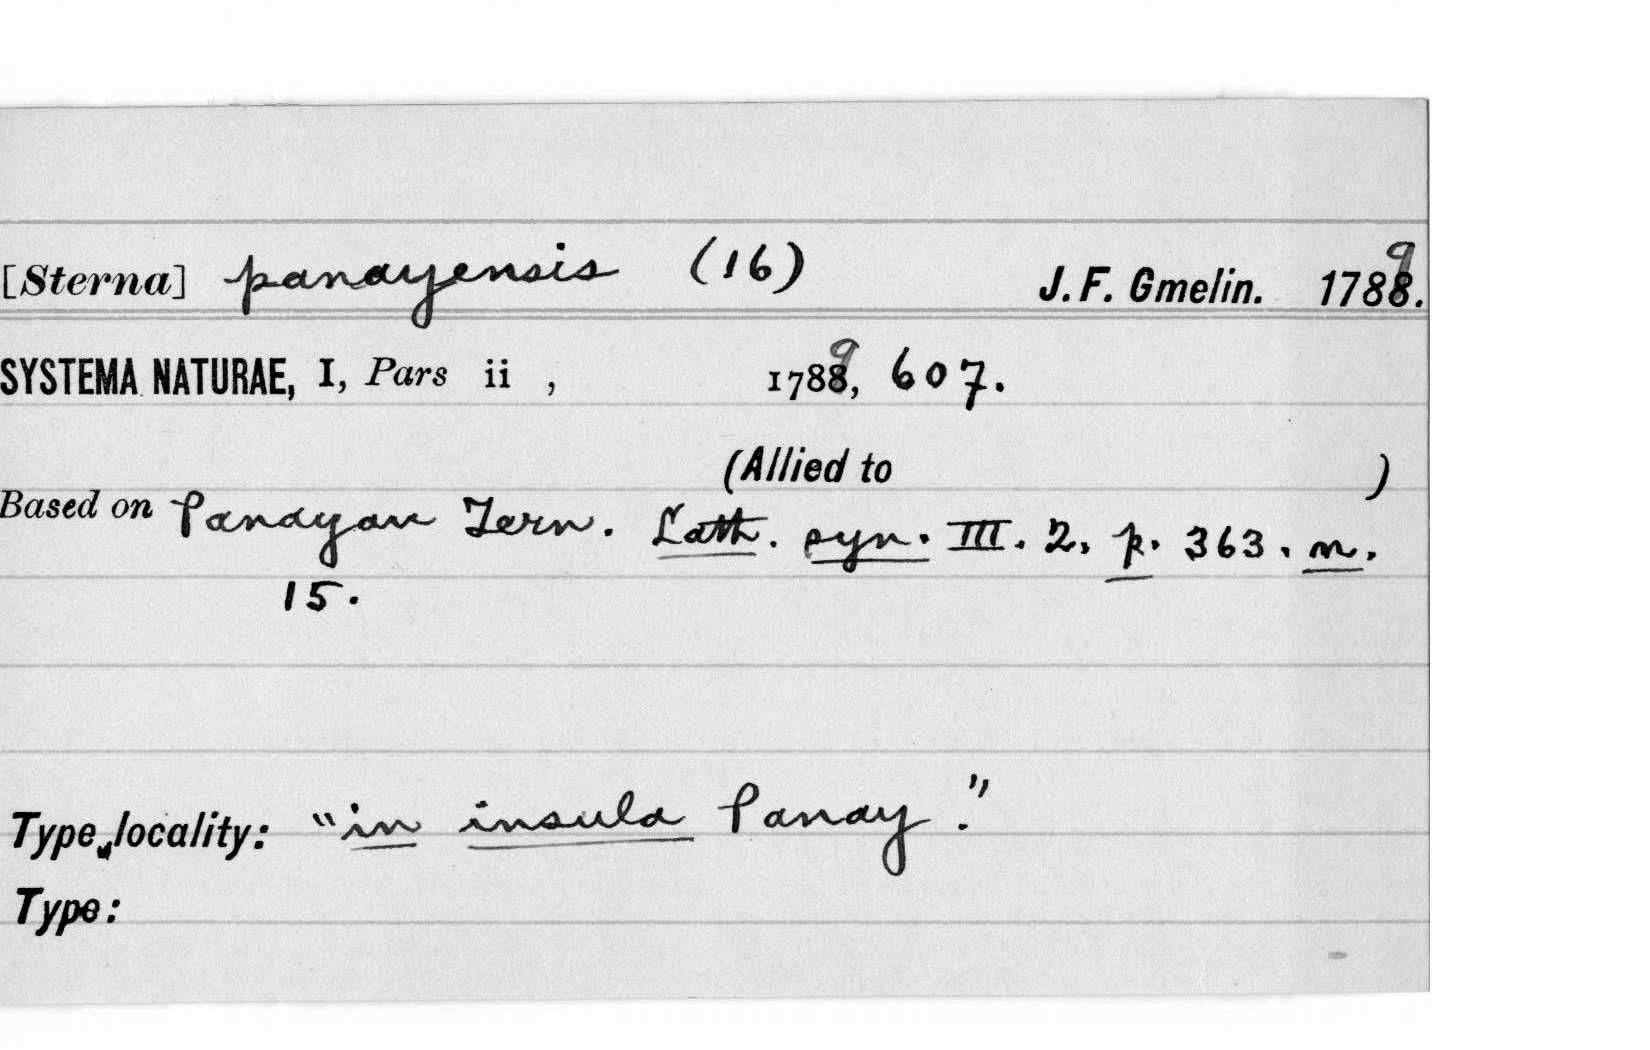 [Sterna] panayensis (16) J. F. Gmelin. 1789.
SYSTEMA NATURAE, I, Pars ii , 1789, 607.
(Allied to )
Based on Panayan Tern. Lath. syn. III. 2, p. 363. n.
15.
Type locality: "in insula Panay."
Type: